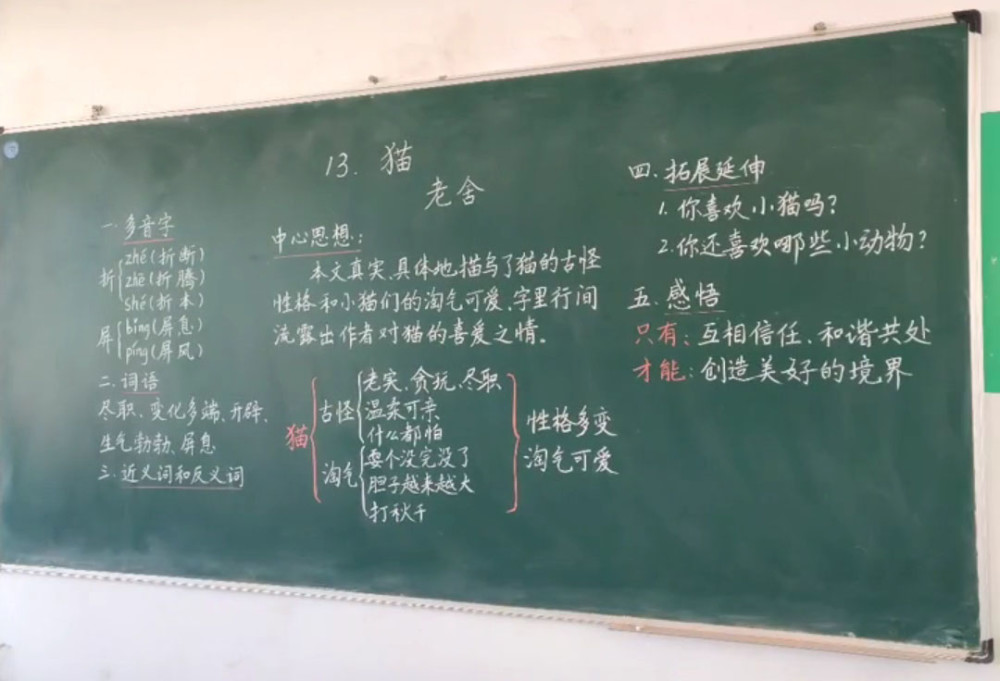 13. 猫
老舍
一. 多音字
折
zhé(折断)
zhē(折腾)
shé(折本)
屏
bǐng(屏息)
píng(屏风)
二. 词语
尽职、变化多端、开辟、
生气勃勃、屏息
三. 近义词和反义词
中心思想:
本文真实、具体地描写了猫的古怪
性格和小猫们的淘气可爱,字里行间
流露出作者对猫的喜爱之情。
猫
古怪
老实、贪玩、尽职
温柔可亲
什么都怕
淘气
耍个没完没了
胆子越来越大
打秋千
性格多变
淘气可爱
四. 拓展延伸
1. 你喜欢小猫吗?
2. 你还喜欢哪些小动物?
五. 感悟
只有: 互相信任、和谐共处
才能: 创造美好的境界